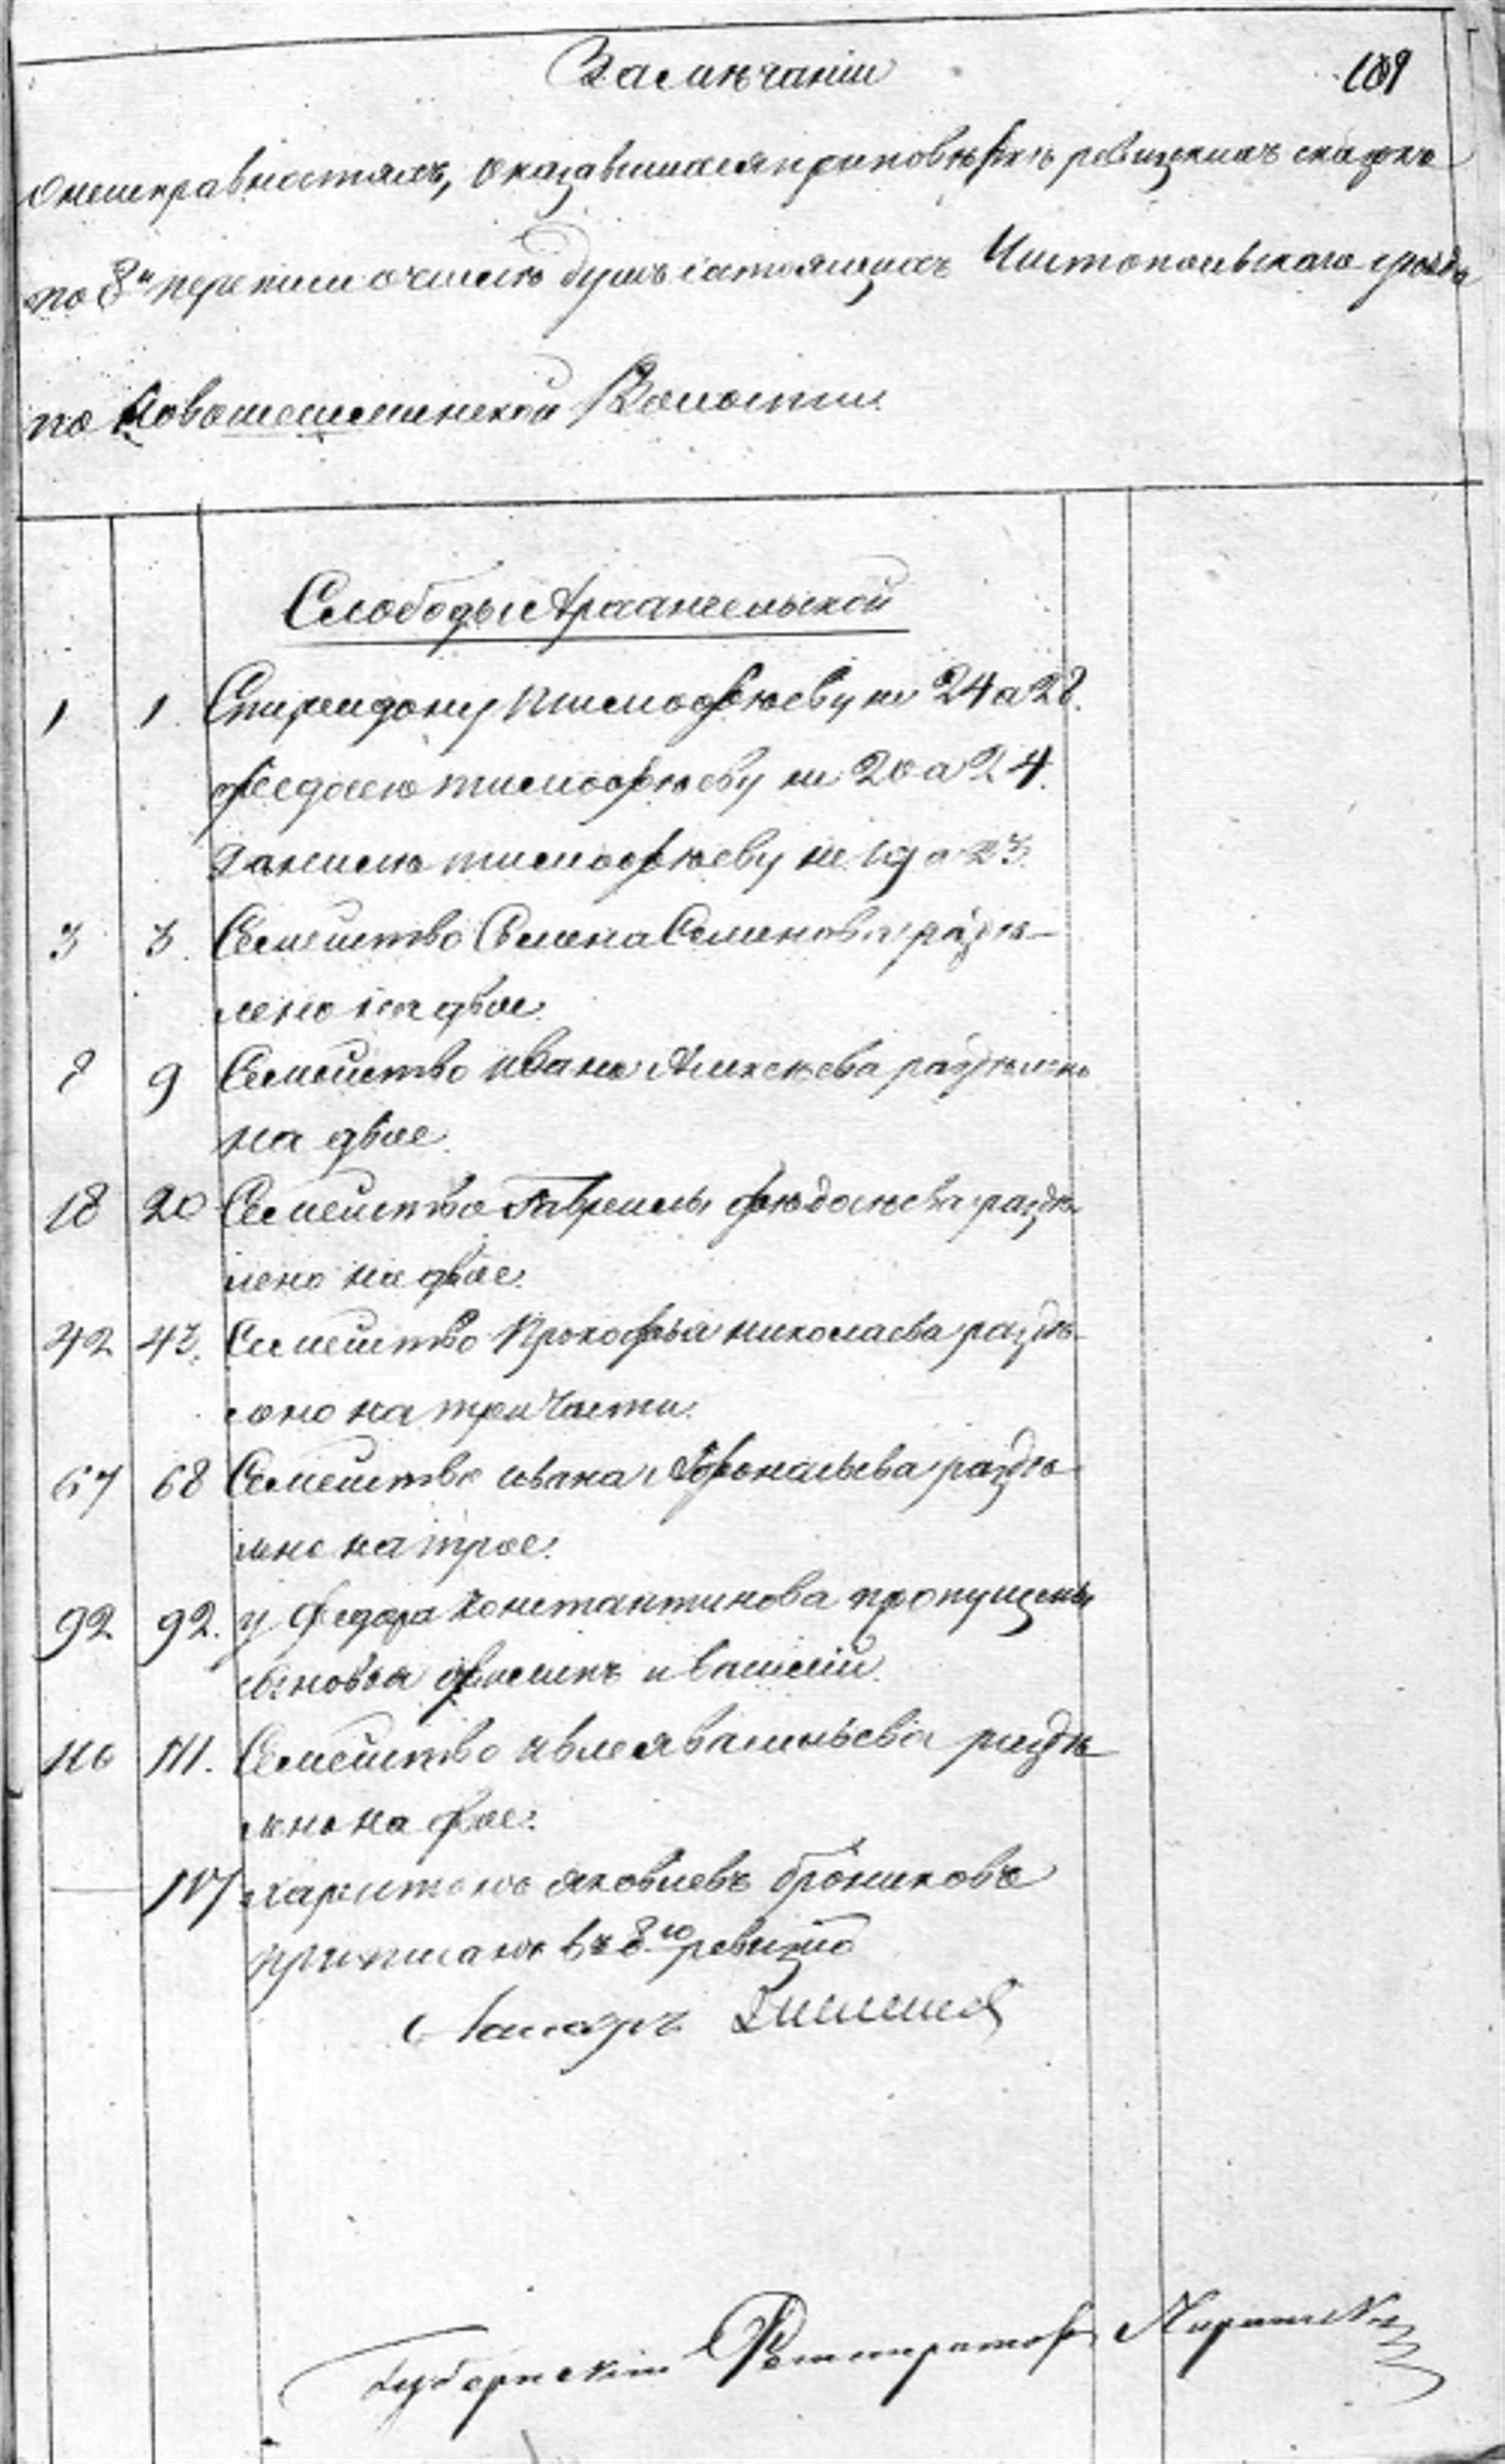 Замѣчаніи 189
о неисправностяхъ, оказавшихся при повѣркѣ ревизскихъ сказокъ
по 8й переписи о числѣ душъ состоящихъ Чистопольскаго уѣзда
по Новошешминской Волости.
Слободы Архангельской
1 1. Спиридону Тимофѣеву не 24 а 28.
Федосею тимофѣеву не 20 а 24.
Данилѣ тимофѣеву не 19 а 23.
3 3. Семейство Семена Семенова раздѣ-
лено на двое.
8 9 Семейство ивана Алексѣева раздѣлено
на двое.
18 20 Семейство Гаврилы федосѣева раздѣ-
лено на двое.
42 43. Семейство Прокофья николаева раздѣ-
лено на три части.
67 68 Семейство ивана Афонасьева раздѣ-
лено на трое.
92 92. у Федора Константинова пропущены
сыновья и василій.
110 111. Семейство васильева раздѣ-
лено на двое.
117 харитонъ яковлевъ
приписанъ въ 8ю ревизію
Губернскій Регистраторъ